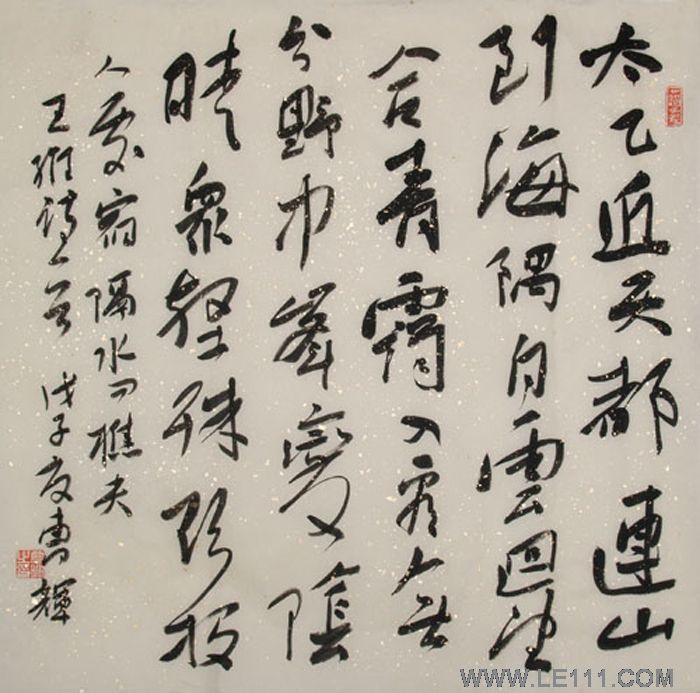 太乙近天都連山
到海隅白雲迴望
合青靄入看無
分野中峯變陰
晴衆壑殊欲投
人處宿隔水问樵夫
王維詩一首 戊子夏曹輝
WWW.LE111.COM